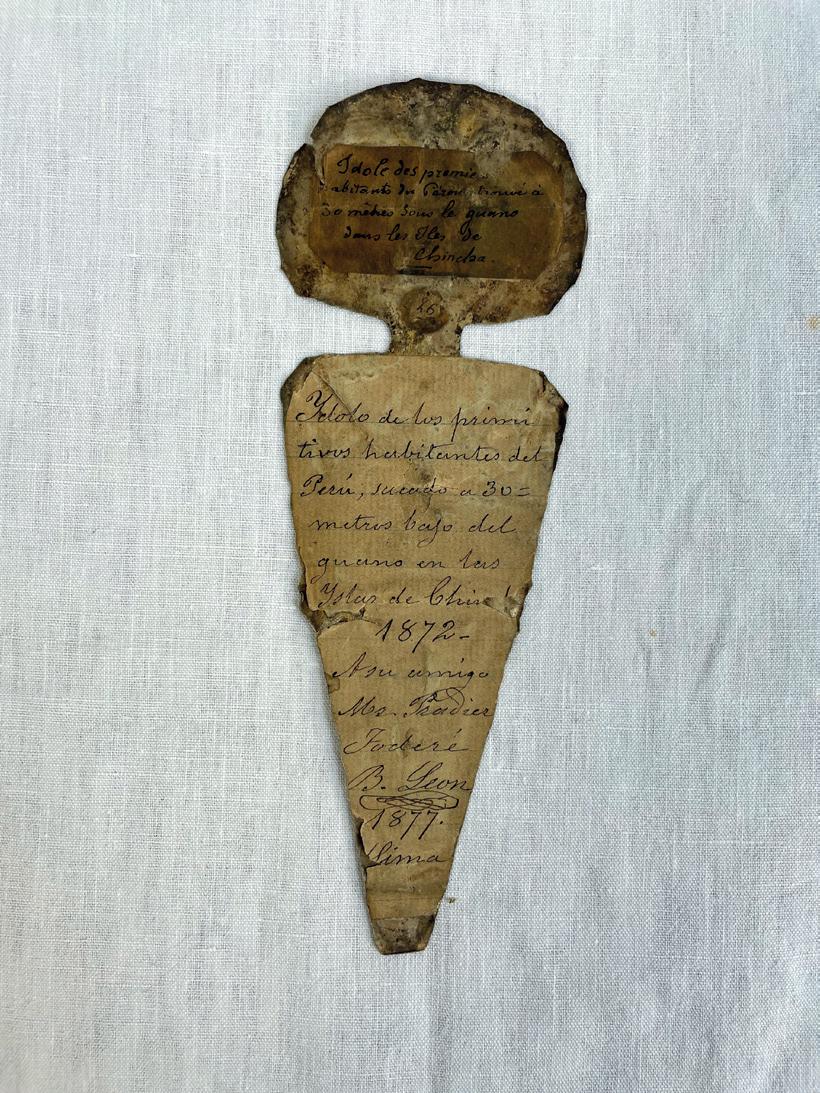 Idole des premiers
habitants du Pérou, trouvé à
30 mètres sous le guano
dans les Iles de
Chincha.
46
Ydolo de los primi
tivos habitantes del
Perú, sacado a 30=
metros bajo del
guano en las
Yslas de Chin
1872-
A su amigo
Mr. Pradier
Foderé
B. Leon
1877.
Lima